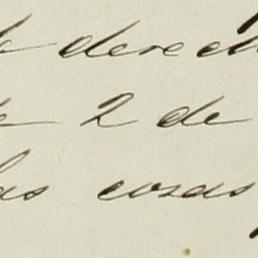 derec
2 de
las cosas